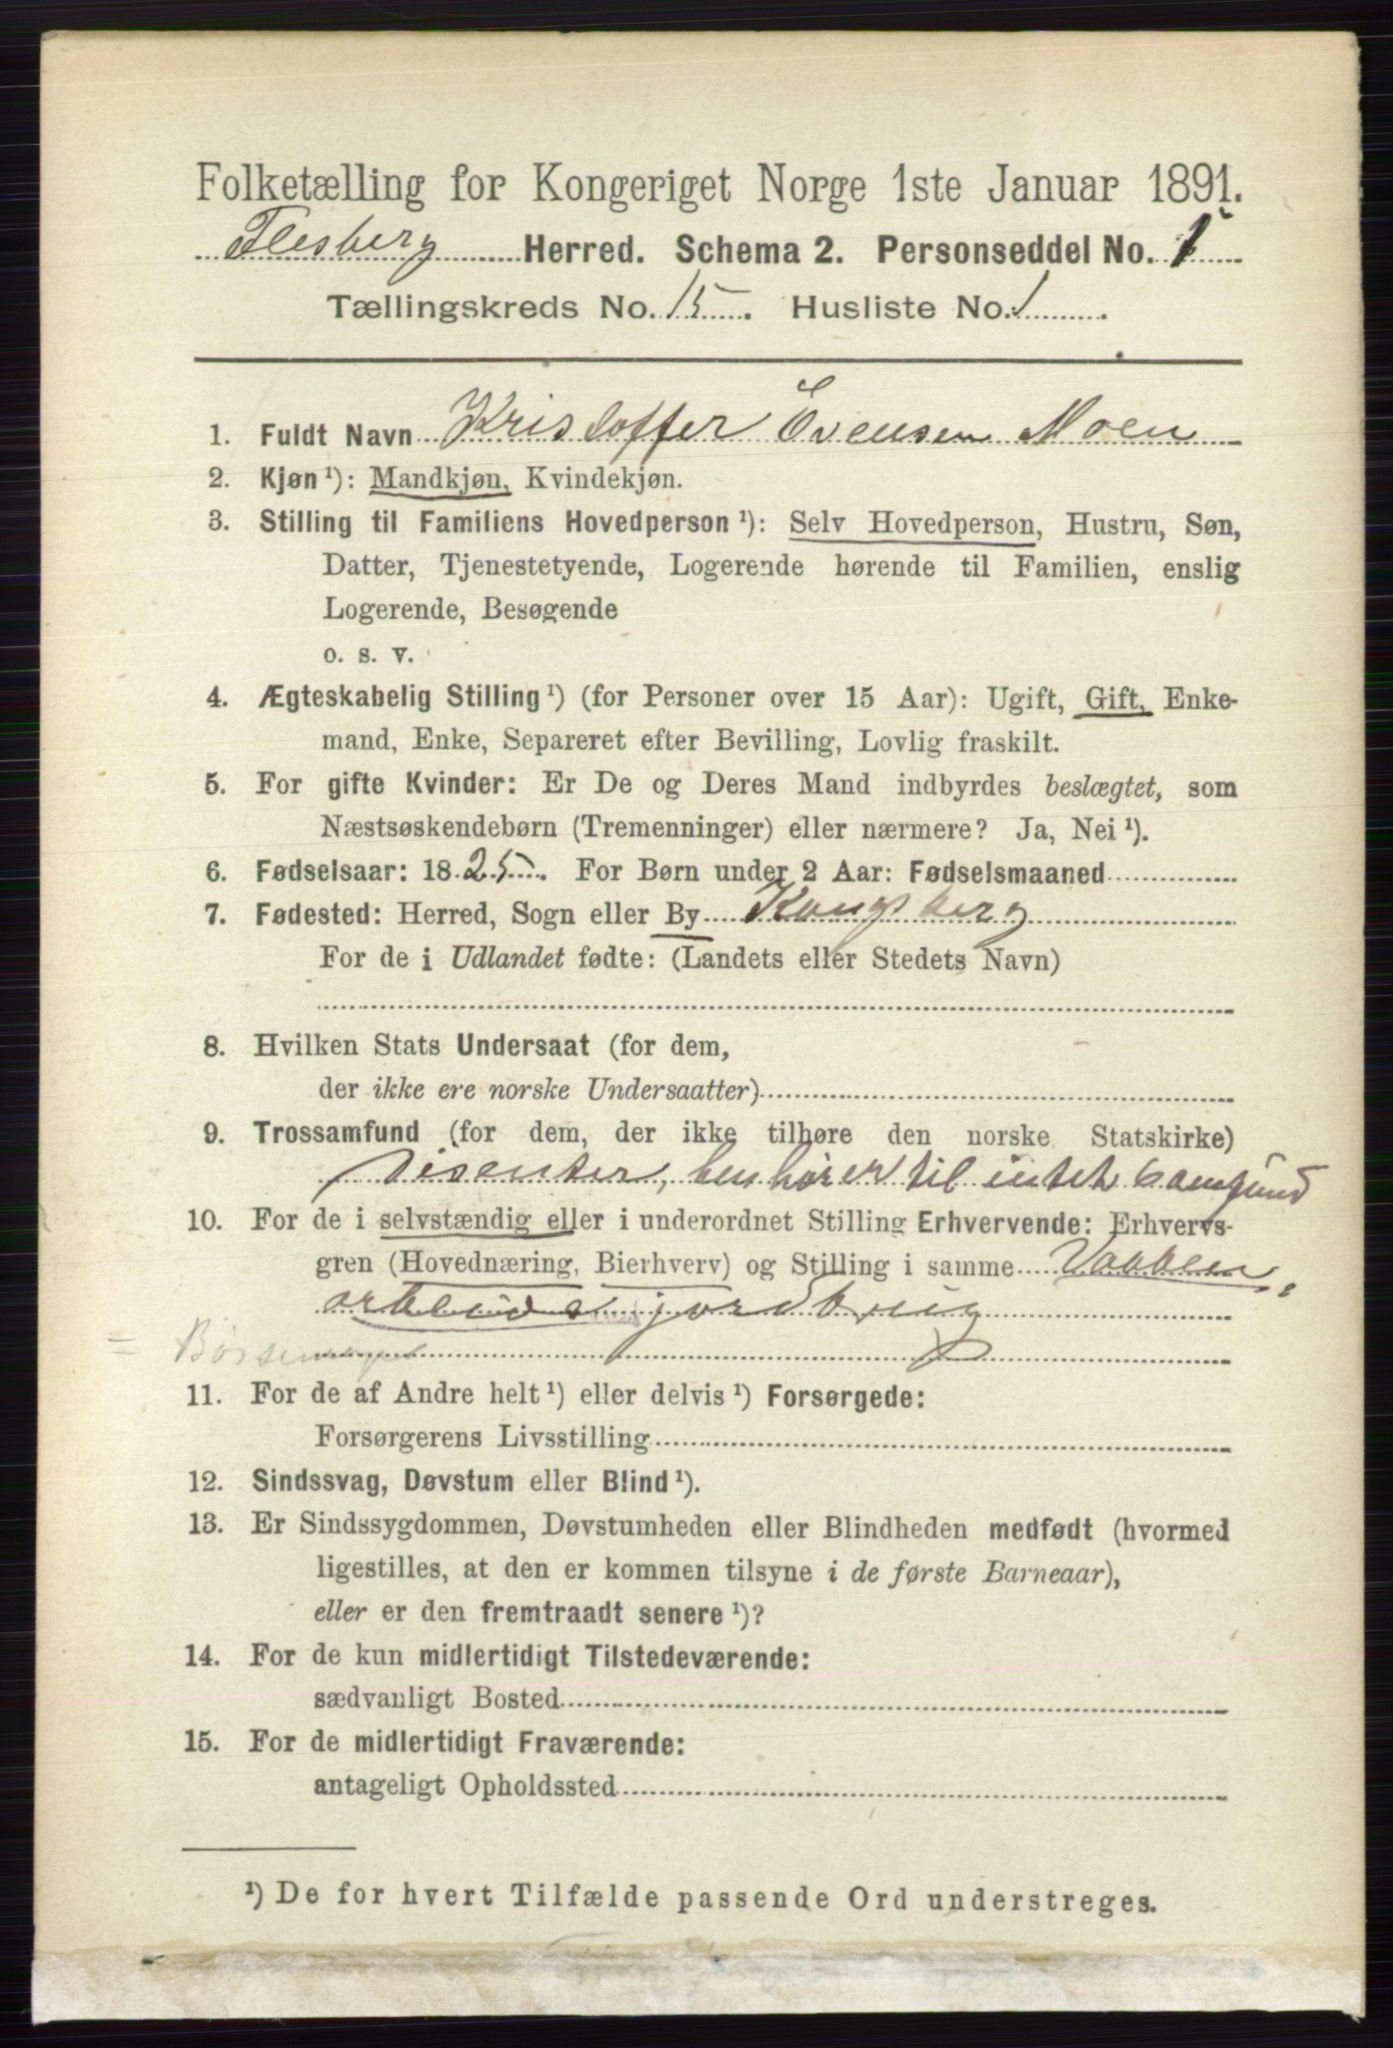 Folketælling for Kongeriget Norge 1ste Januar 1891.
Flesberg Herred. Schema 2. Personseddel No. 1
Tællingskreds No. 15. Husliste No. 1
1. Fuldt Navn Kristoffer Evensen Moen
2. Kjøn ¹): Mandkjøn, Kvindekjøn.
3. Stilling til Familiens Hovedperson ¹): Selv Hovedperson, Hustru, Søn,
Datter, Tjenestetyende, Logerende hørende til Familien, enslig
Logerende, Besøgende
o. s. v.
4. Ægteskabelig Stilling ¹) (for Personer over 15 Aar): Ugift, Gift, Enke-
mand, Enke, Separeret efter Bevilling, Lovlig fraskilt.
5. For gifte Kvinder: Er De og Deres Mand indbyrdes beslægtet, som
Næstsøskendebørn (Tremenninger) eller nærmere? Ja, Nei ¹).
6. Fødselsaar: 1825. For Børn under 2 Aar: Fødselsmaaned
7. Fødested: Herred, Sogn eller By Kongsberg
For de i Udlandet fødte: (Landets eller Stedets Navn)
8. Hvilken Stats Undersaat (for dem,
der ikke ere norske Undersaatter)
9. Trossamfund (for dem, der ikke tilhøre den norske Statskirke)
Disenter, henhører til intet Samfund
10. For de i selvstændig eller i underordnet Stilling Erhvervende: Erhvervs-
gren (Hovednæring, Bierhverv) og Stilling i samme Vaaben
arbeide jordbrug
= Børsemager
11. For de af Andre helt ¹) eller delvis ¹) Forsørgede:
Forsørgerens Livsstilling
12. Sindssvag, Døvstum eller Blind ¹).
13. Er Sindssygdommen, Døvstumheden eller Blindheden medfødt (hvormed
ligestilles, at den er kommen tilsyne i de første Barneaar),
eller er den fremtraadt senere ¹)?
14. For de kun midlertidigt Tilstedeværende:
sædvanligt Bosted
15. For de midlertidigt Fraværende:
antageligt Opholdssted
¹) De for hvert Tilfælde passende Ord understreges.